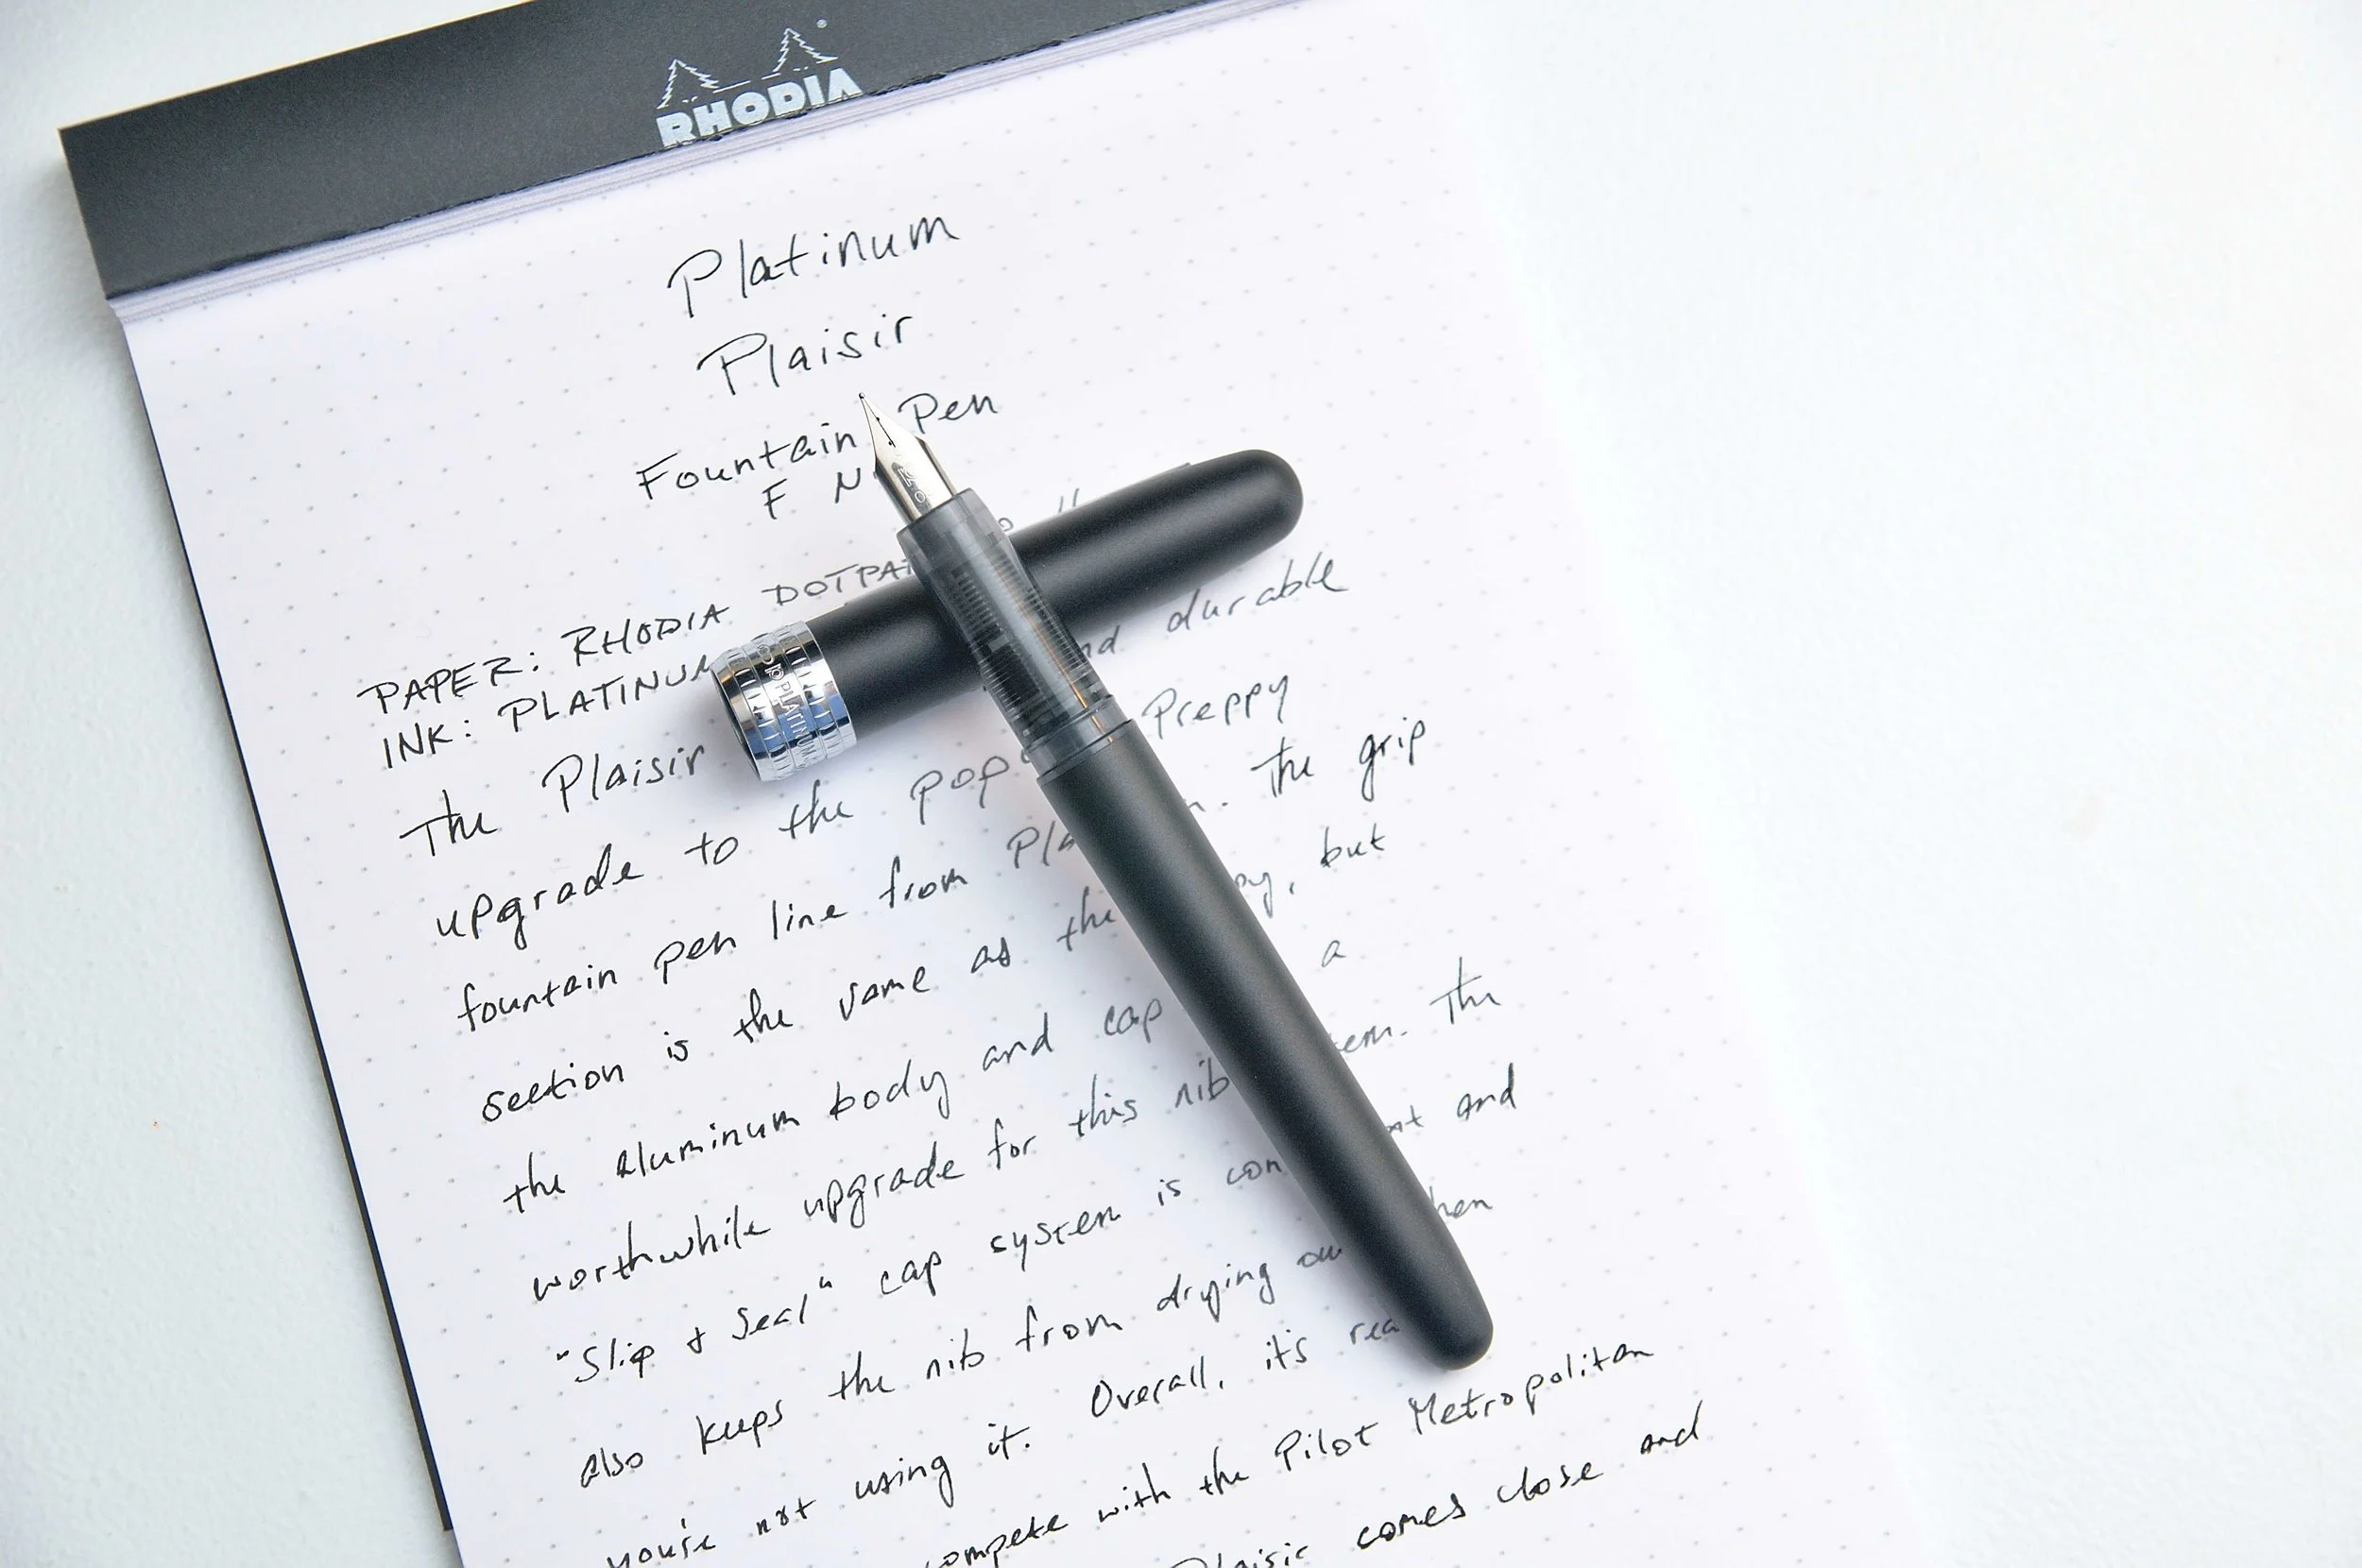 RHODIA
Platinum
Plaisir
Fountain Pen
F
PAPER: RHODIA
INK: PLATINUM
PLATINUM
The Plaisir and durable
upgrade to the Preppy
fountain pen line from The grip
section is the same as the but
the aluminum body and cap a
worthwhile upgrade for this nib The
"Slip & Seal" cap system is and
also keeps the nib from drying
you're not using it. Overall, it's
compete with the Pilot Metropolitan
Plaisir comes close and